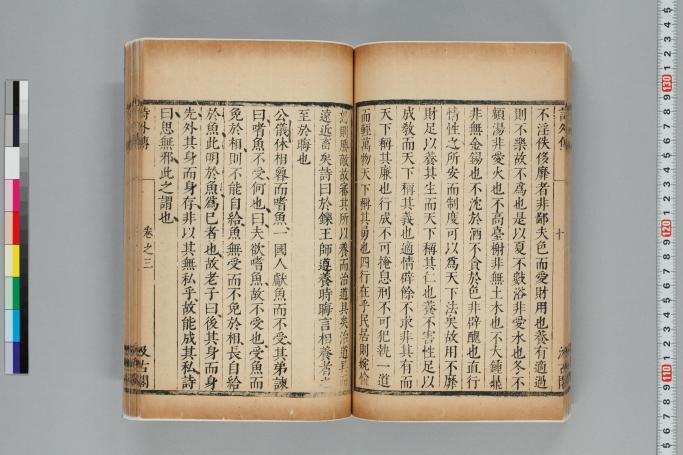 詩外傳
十
不淫佚侈靡者非鄙夫色而愛財用也養有適過
則不樂故不爲也是以夏不數浴非愛水也冬不
頻湯非愛火也不高臺榭非無土木也不大鍾鼎
非無金錫也不沈於酒不貪於色非辟醜也直行
情性之所安而制度可以爲天下法矣故用不靡
財足以養其生而天下稱其仁也養不害性足以
成教而天下稱其義也適情辟餘不求非其有而
天下稱其廉也行成不可掩息刑不可犯執一道
而輕萬物天下稱其勇也四行在乎民居則婉愉
怒則勝敵故審其所以養而治道具矣治道具而
遠近畜矣詩曰於鑠王師遵養時晦言相養者之
至於晦也
公儀休相魯而嗜魚一國人獻魚而不受其弟諫
曰嗜魚不受何也曰夫欲嗜魚故不受也受魚而
免於相則不能自給魚無受而不免於相長自給
於魚此明於魚爲己者也故老子曰後其身而身
先外其身而身存非以其無私乎故能成其私詩
曰思無邪此之謂也
詩外傳
卷之三
汲古閣